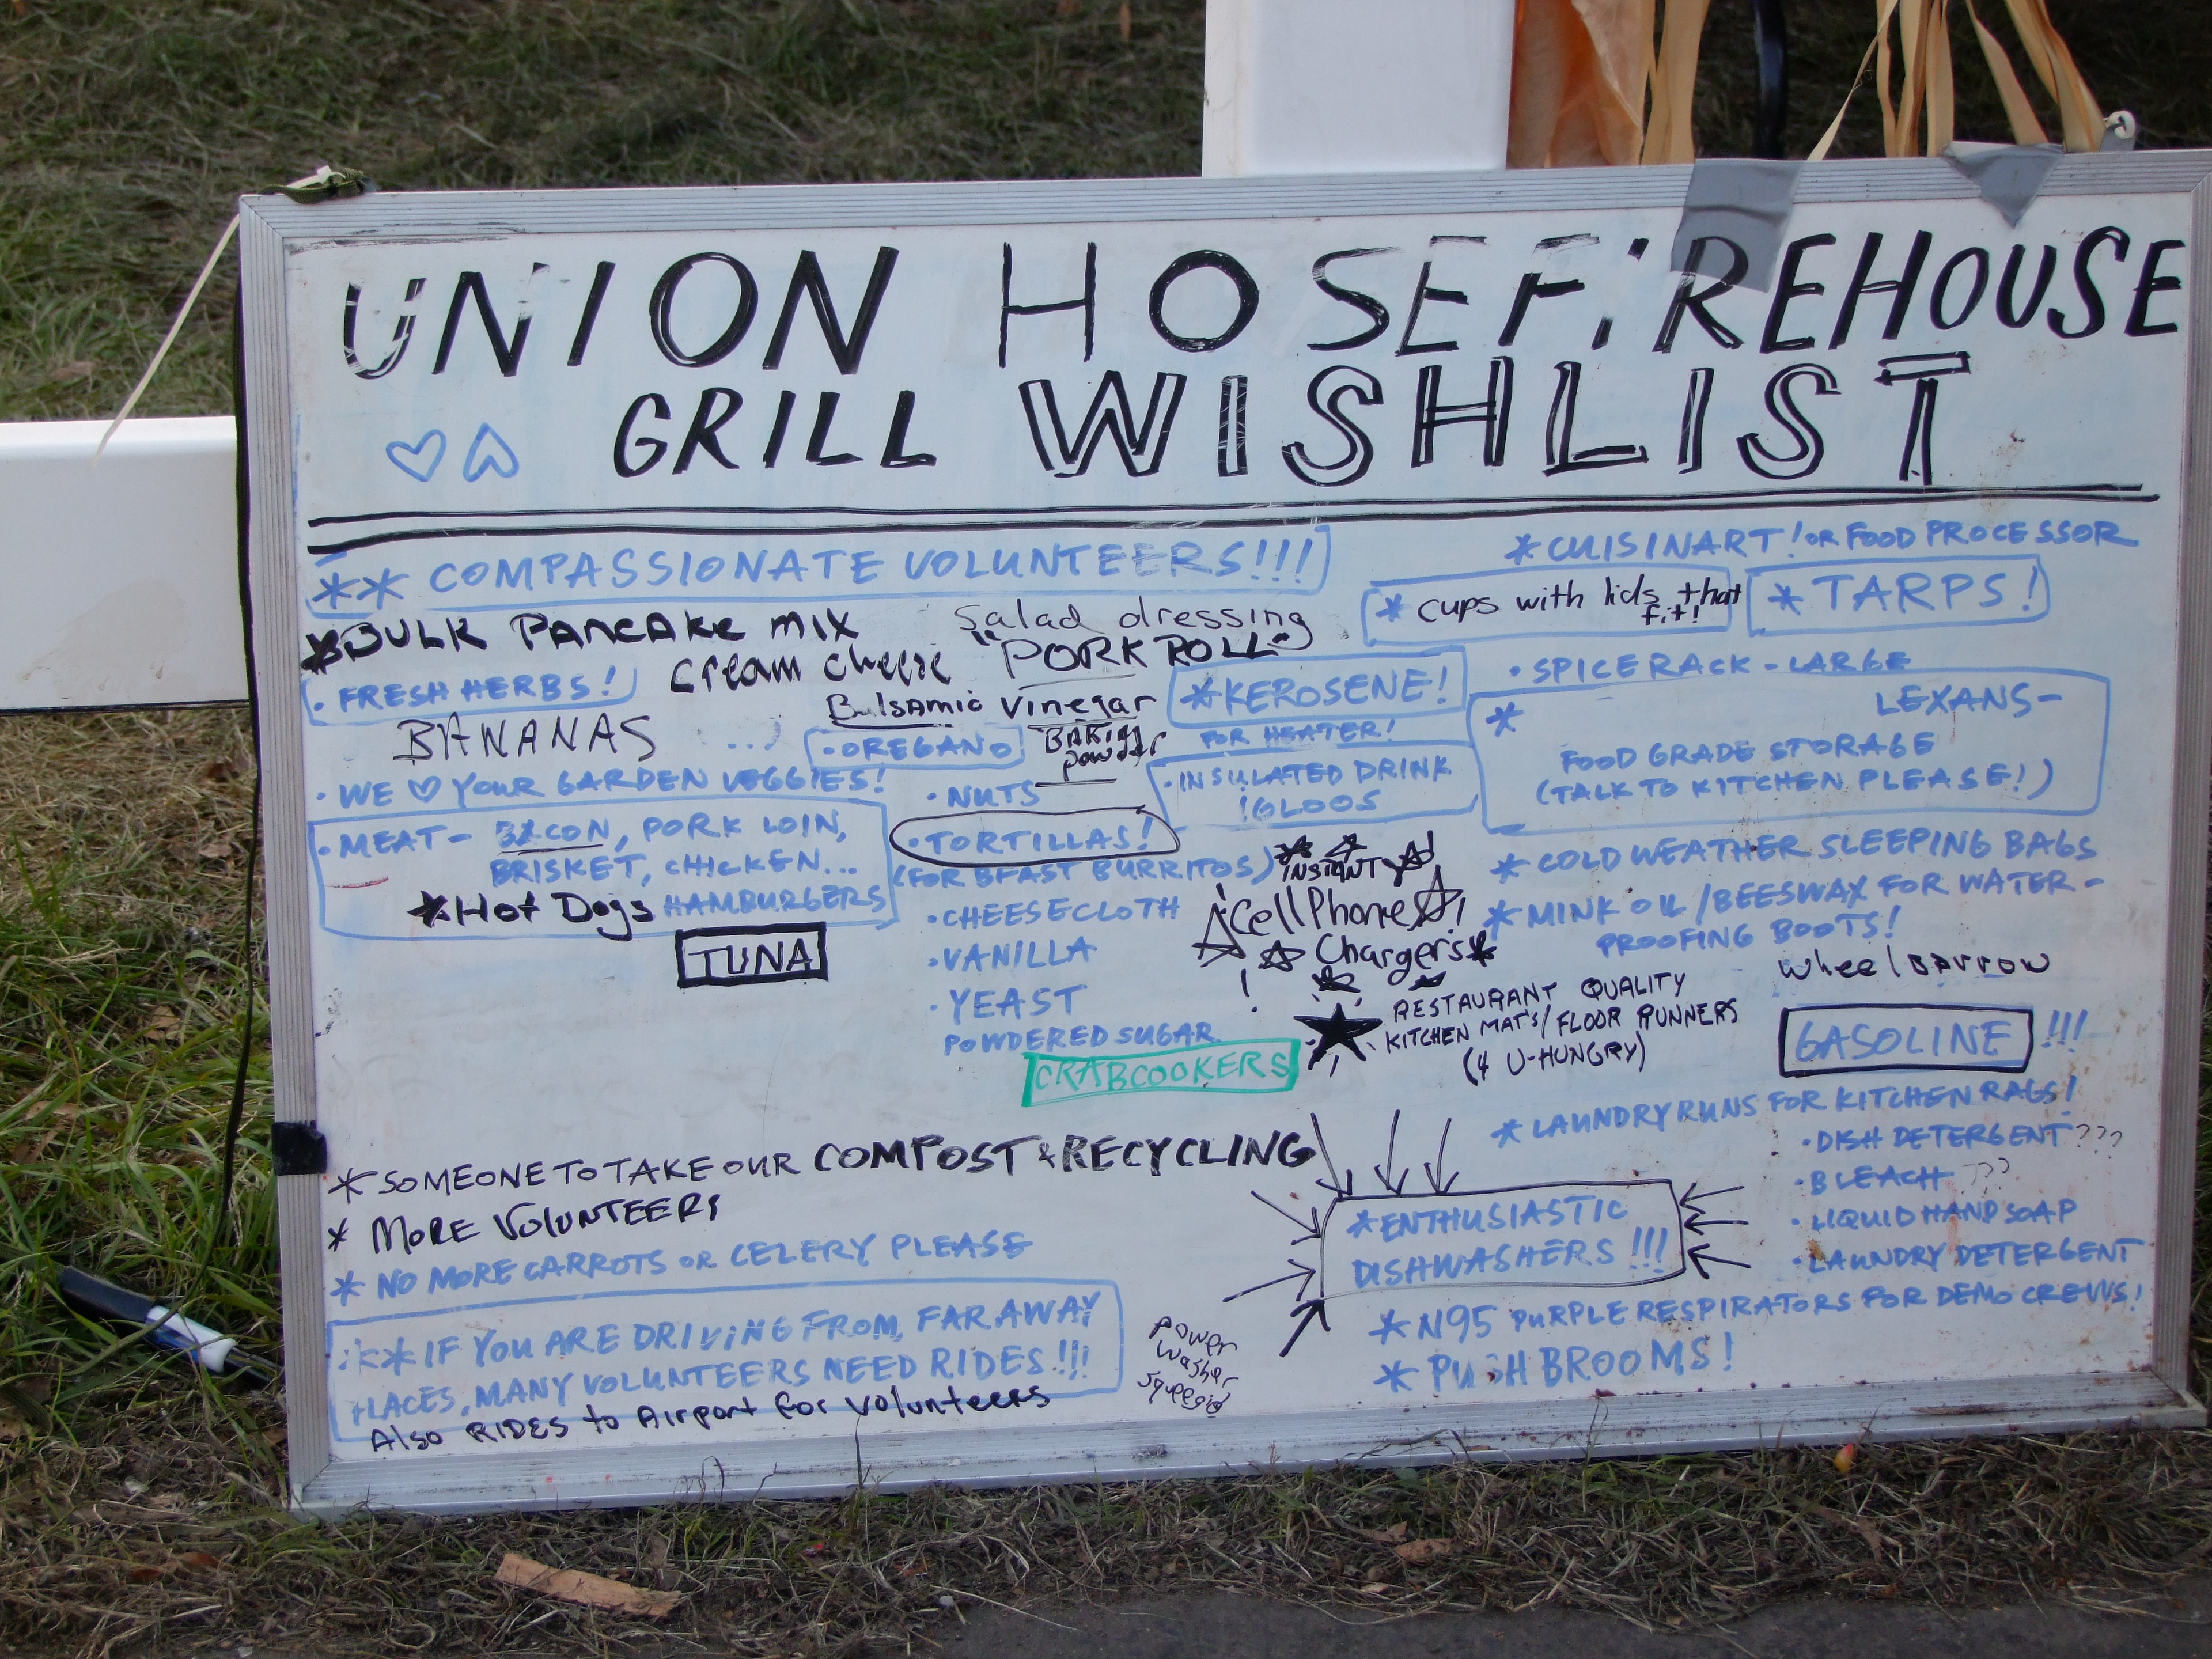 UNION HOSE FiREHOUSE
GRILL WISHLIST
** COMPASSIONATE VOLUNTEERS!!!!
*BULK PANCAKE MIX
Salad dressing
cream cheese
"PORK ROLL"
• FRESH HERBS!
Balsamic Vinegar
BANANAS
...
• OREGANO
BAKING
powder
• WE ♡ YOUR GARDEN VEGGIES!
• NUTS
• MEAT - BACON, PORK LOIN,
BRISKET, CHICKEN...
*Hot Dogs HAMBURGERS
TUNA
• TORTILLAS!
(FOR BFAST BURRITOS)
• CHEESECLOTH
• VANILLA
• YEAST
POWDERED SUGAR
CRABCOOKERS
*KEROSENE!
FOR HEATER!
• INSULATED DRINK
IGLOOS
INSTANT
Cell Phone
Chargers
RESTAURANT QUALITY
KITCHEN MAT'S/FLOOR RUNNERS
(4 U-HUNGRY)
*CUISINART! OR FOOD PROCESSOR
* cups with lids that
fit!
* TARPS!
• SPICE RACK - LARGE
* LEXANS -
FOOD GRADE STORAGE
(TALK TO KITCHEN PLEASE!)
* COLD WEATHER SLEEPING BAGS
* MINK OIL/BEESWAX FOR WATER-
PROOFING BOOTS!
wheelbarrow
GASOLINE !!!
* LAUNDRY RUNS FOR KITCHEN RAGS!
• DISH DETERGENT???
• BLEACH ???
• LIQUID HAND SOAP
• LAUNDRY DETERGENT
* SOMEONE TO TAKE OUR COMPOST & RECYCLING
* MORE VOLUNTEERS
* NO MORE CARROTS OR CELERY PLEASE
** IF YOU ARE DRIVING FROM FAR AWAY
PLACES, MANY VOLUNTEERS NEED RIDES!!!
Also RIDES to Airport for volunteers
power
washer
squeegid
*ENTHUSIASTIC
DISHWASHERS!!!
* N95 PURPLE RESPIRATORS FOR DEMO CREWS!
* PUSH BROOMS!